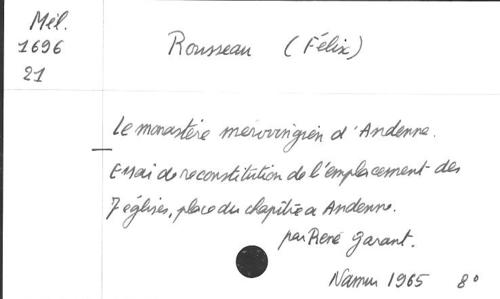 Mél.
1696
21
Rousseau (Félix)
Le monastère mérovingien d'Andenne.
Essai de reconstitution de l'emplacement des
7 églises, place du chapître a Andenne.
par René Garant.
Namur 1965 8°